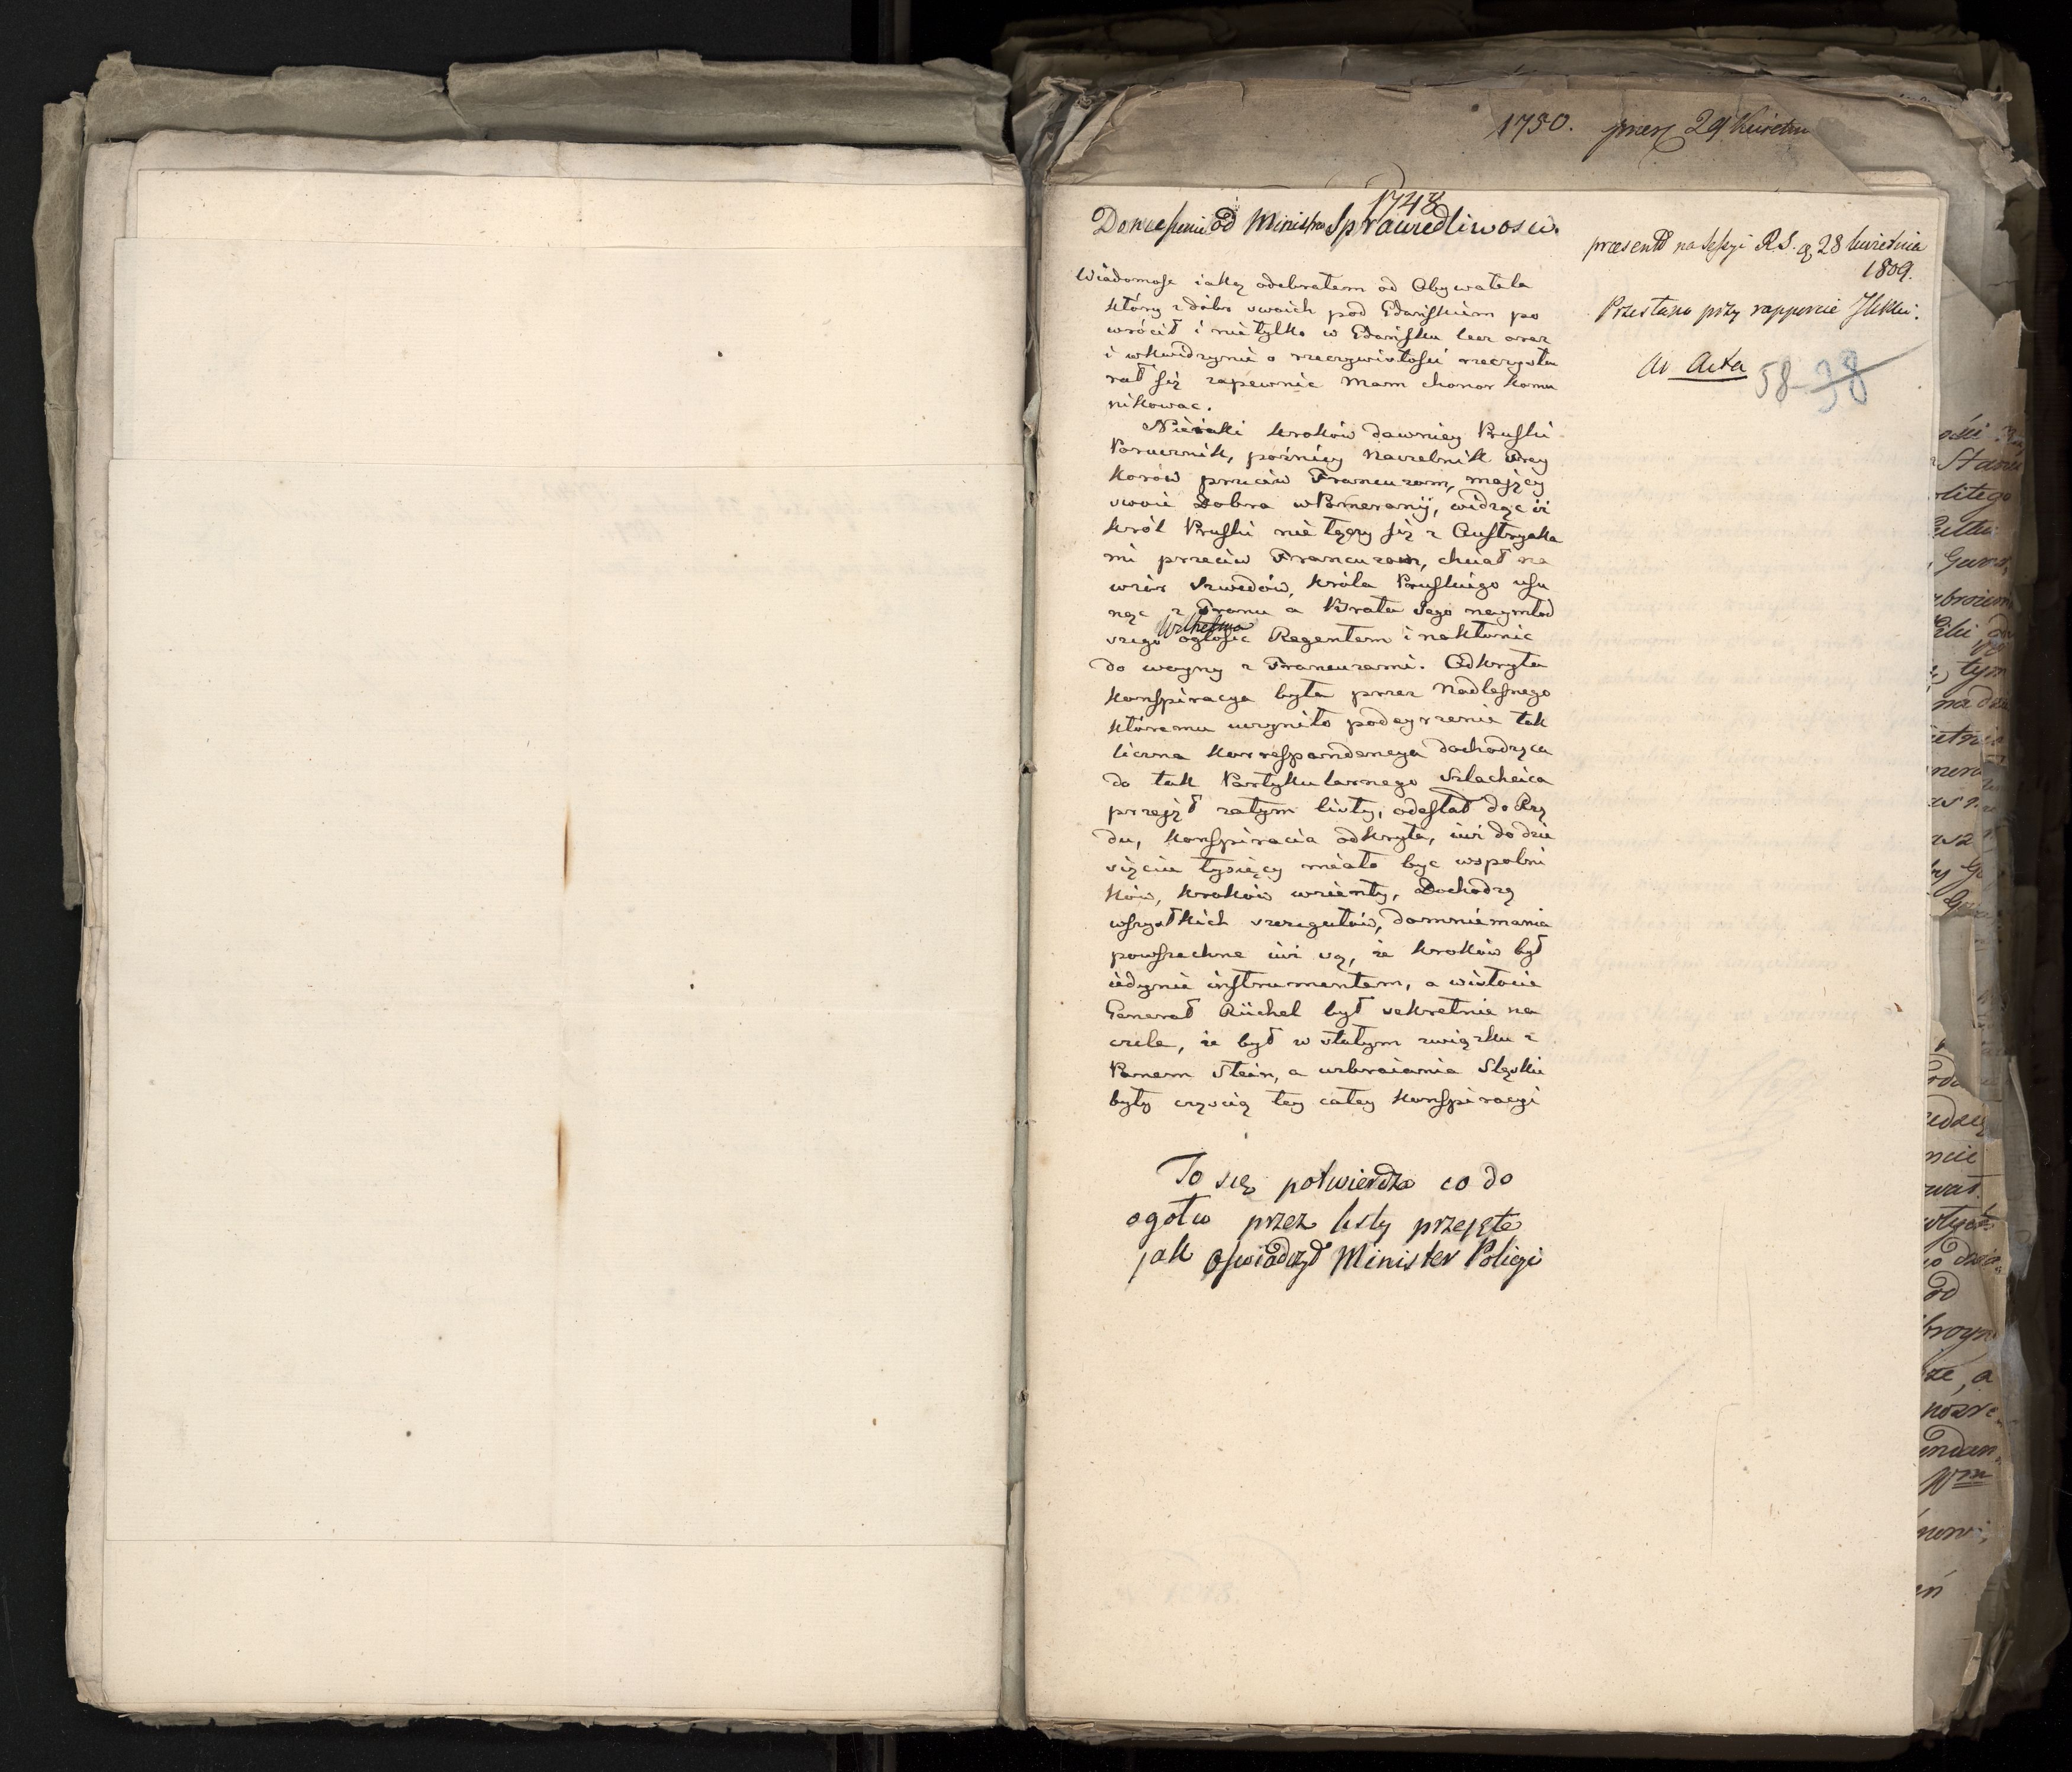 1750. 29 Kwietnia
1748
Doniesienie od Ministra Sprawiedliwosci.
præsentt na Sessyi R.S. d. 28 kwietnia
1809.
Przesłano przy rapporcie
ad Acta 58-38
Wiadomosc iaką odebrałem od Obywatela
który z dobr swoich pod Gdańskiem po
wrócił i nietylko w Gdańsku lecz oraz
i w Kwidzynie o rzeczywistości
rał się zapewnie mam chonor komu
nikowac.
Nieiaki Kroków dawniey Pruski
Porucznik, pożniey Naczelnik
przeciw Francuzom, mający
swoie Dobra w Pomeranij, widząc iż
Król Pruski nie łączy się z Austryaka
mi przeciw Francuzom, chciał na
wzór Szwedów, Króla Pruskiego usu
nąc z Tronu a Brata Jego naymłod
szego Wilhelma ogłosic Regentem i nakłonic
do woyny z Francuzami. Odkryta
Konspiracya była przez Nadlesnego
któremu uczyniło podeyrzenie tak
liczna Korrespondencya dochodząca
do tak Partykularnego Szlachcica
przejął zatym listy, odesłał do Rzą
du, Konspiracia odkryta, iuż do dzie
sięciu tysięcy miało byc wspolni
ków, Kroków wzienty, Dochodzą
wszystkich szczegułów, domniemania
powszechne iuż są, że Kroków był
iedynie instrumentem, a w istocie
Generał Rüchel był sekretnie na
czele, że był w stałym związku z
Panem Stein, a uzbraiania Sląska
były częscią tey całey Konspiracyi
To się potwierdza co do
ogołu przez listy przejęte
jak oswiadczył Minister Policyi